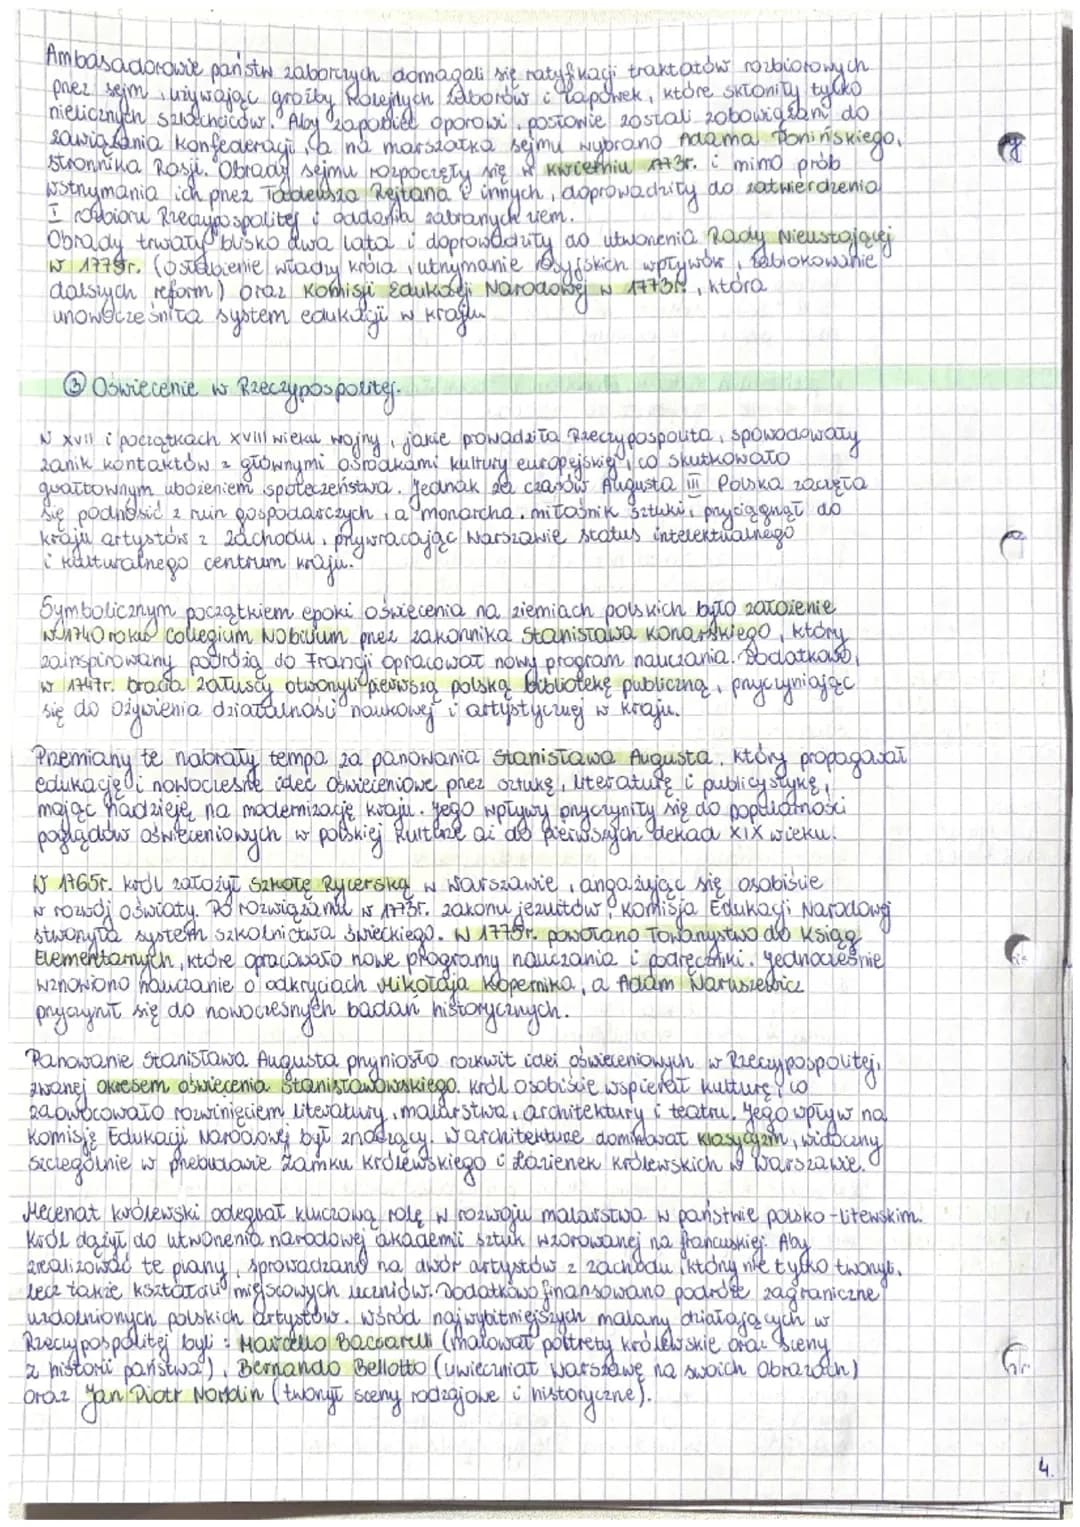 Ambasadorowie państw zaborczych domagali się ratyfikacji traktatów rozbiorowych
przez sejm, używając groźby kolejnych zaborów i łapówek, które skłoniły tylko
nielicznych szlachciców. Aby zapobiec oporowi, posłowie zostali zobowiązani do
zawiązania konfederacji, a na marszałka sejmu wybrano Adama Ponińskiego,
stronnika Rosji. Obrady sejmu rozpoczęły się w kwietniu 1773r. i mimo prób
wstrzymania ich przez Tadeusza Rejtana i innych, doprowadziły do zatwierdzenia
I rozbioru Rzeczypospolitej i oddania zabranych ziem.
Obrady trwały blisko dwa lata i doprowadziły do utworzenia Rady Nieustającej
w 1775r. (osłabienie władzy króla, utrzymanie rosyjskich wpływów, zablokowanie
dalszych reform) oraz Komisji Edukacji Narodowej w 1773r., która
unowocześniła system edukacji w kraju.
③ Oświecenie w Rzeczypospolitej.
W XVII i początkach XVIII wieku wojny, jakie prowadziła Rzeczypospolita, spowodowały
zanik kontaktów z głównymi ośrodkami kultury europejskiej, co skutkowało
gwałtownym ubożeniem społeczeństwa. Jednak za czasów Augusta III Polska zaczęła
się podnosić z ruin gospodarczych, a monarcha, miłośnik sztuki, przyciągnął do
kraju artystów z zachodu, przywracając Warszawie status intelektualnego
i kulturalnego centrum kraju.
Symbolicznym początkiem epoki oświecenia na ziemiach polskich było założenie
w 1740 roku Collegium Nobilium przez zakonnika Stanisława Konarskiego, który
zainspirowany podróżą do Francji opracował nowy program nauczania. Dodatkowo,
w 1747r. bracia Załuscy otworzyli pierwszą polską bibliotekę publiczną, przyczyniając
się do ożywienia działalności naukowej i artystycznej w kraju.
Przemiany te nabrały tempa za panowania Stanisława Augusta, który propagował
edukację i nowoczesne idee oświeceniowe przez sztukę, literaturę i publicystykę,
mając nadzieję na modernizację kraju. Jego wpływy przyczyniły się do popularności
poglądów oświeceniowych w polskiej kulturze aż do pierwszych dekad XIX wieku.
W 1765r. król założył Szkołę Rycerską w Warszawie, angażując się osobiście
w rozwój oświaty. Po rozwiązaniu w 1773r. zakonu jezuitów, Komisja Edukacji Narodowej
stworzyła system szkolnictwa świeckiego. W 1775r. powołano Towarzystwo do Ksiąg
Elementarnych, które opracowało nowe programy nauczania i podręczniki. Jednocześnie
wznowiono nauczanie o odkryciach Mikołaja Kopernika, a Adam Naruszewicz
przyczynił się do nowoczesnych badań historycznych.
Panowanie Stanisława Augusta przyniosło rozkwit idei oświeceniowych w Rzeczypospolitej,
zwanej okresem oświecenia stanisławowskiego. Król osobiście wspierał kulturę, co
zaowocowało rozwinięciem literatury, malarstwa, architektury i teatru. Jego wpływ na
Komisję Edukacji Narodowej był znaczący. W architekturze dominował klasycyzm, widoczny
szczególnie w przebudowie Zamku Królewskiego i Łazienek Królewskich w Warszawie.
Mecenat królewski odegrał kluczową rolę w rozwoju malarstwa w państwie polsko-litewskim.
Król dążył do utworzenia narodowej akademii sztuk wzorowanej na francuskiej. Aby
zrealizować te plany, sprowadzano na dwór artystów z zachodu, którzy nie tylko tworzyli,
lecz także kształcili miejscowych uczniów. Dodatkowo finansowano podróże zagraniczne
uzdolnionych polskich artystów. Wśród najwybitniejszych malarzy działających w
Rzeczypospolitej byli: Marcello Bacciarelli (malował portrety królewskie oraz sceny
z historii państwa), Bernardo Bellotto (uwieczniał Warszawę na swoich obrazach)
oraz Jan Piotr Norblin (tworzył sceny rodzajowe i historyczne).
4.